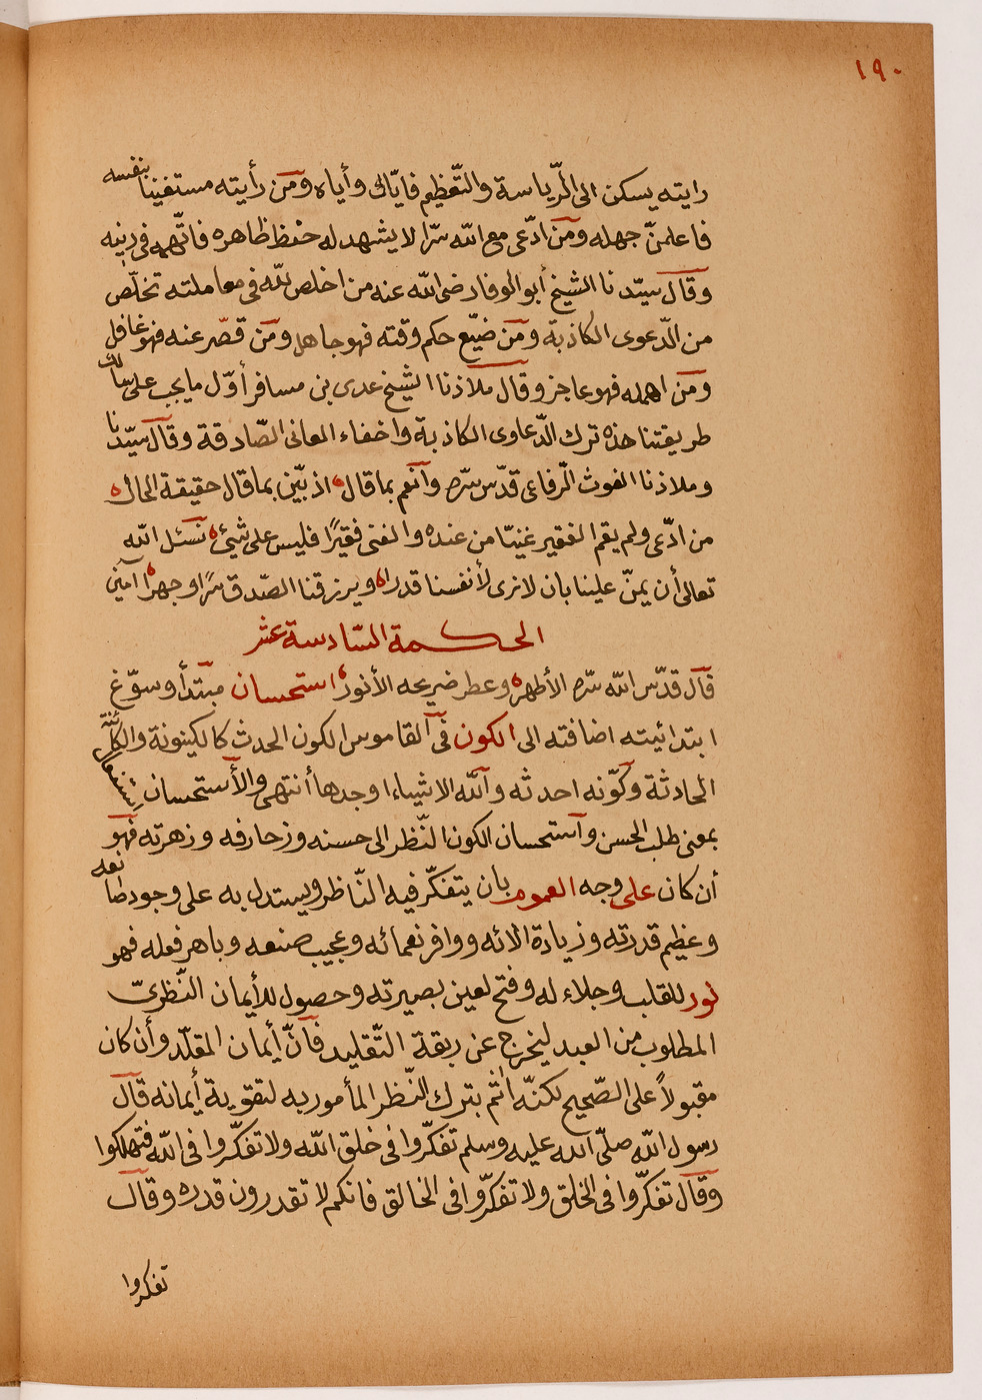 ١٩٠
رايته يسكن الى الرّياسة والتّعظيم فايّاك وأياه ومَن رأيته مستغنيا بنفسه
فاعلمنّ جهله ومَن ادّعى مع اللّه سرّا لا يشهد له حفظ ظاهره فاتّهمه فى دينه
وقال سيّدنا الشيخ أبو الوفا رضى اللّه عنه من اخلص للّه فى معاملته تخلّص
من الدّعوى الكاذبة ومَن ضيّع حكم وقته فهو جاهل ومَن قصّر عنه فهو غافل
ومَن اهمله فهو عاجز وقال ملاذنا الشيخ عدى بن مسافر أوّل ما يجب على سالك
طريقتنا هذه ترك الدّعاوى الكاذبة واخفاء المعانى الصّادقة وقال سيّدنا
وملاذنا الغوث الرّفاعى قدّس سرّه وآنعم بما قال اذ بيّن بما قال حقيقة الحال
من ادّعى ولم يقم الفقير غنيّا من عنده والغنى فقيرًا فليس على شيئ نسئل اللّه
تعالى أن يمنّ علينا بان لا نرى لأنفسنا قدرا ويرزقنا الصّدق سرًا وجهرا آمين
الحكمة السّادسة عشر
قال قدّس اللّه سرّه الأطهر وعطر ضريحه الأنور استحسان مبتدأ وسوّغ
ابتدائيته اضافته الى الكون فى القاموس الكون الحدث كالكينونة والكائنة
الحادثة وكوّنه احدثه واللّه الاشياء اوجدها أنتهى والأستحسان يستعمل
بمعنى طلب الحسن واستحسان الكون النّظر الى حسنه وزحارفه وزهرته فهو
أن كان على وجه العموم بان يتفكّر فيه النّاظر ويستدل به على وجود صانعه
وعظيم قدرته وزيادة الائه ووافر نعمائه وعجيب صنعه وباهر فعله فهو
نور للقلب وجلاء له وفتح لعين بصيرته وحصول للأيمان النّظرىّ
المطلوب من العبد ليخرج عن ربقة التّقليد فانّ أيمان المقلّد وأن كان
مقبولاً على الصّحيح لكنّه اثم بترك النّظر المأمور به لتقوية أيمانه قال
رسول اللّه صلّى اللّه عليه وسلم تفكّروا فى خلق اللّه ولا تفكّروا فى اللّه فتهلكوا
وقال تفكّروا فى الخلق ولا تفكرّوا فى الخالق فانكم لا تقدرون قدره وقال
تفكروا